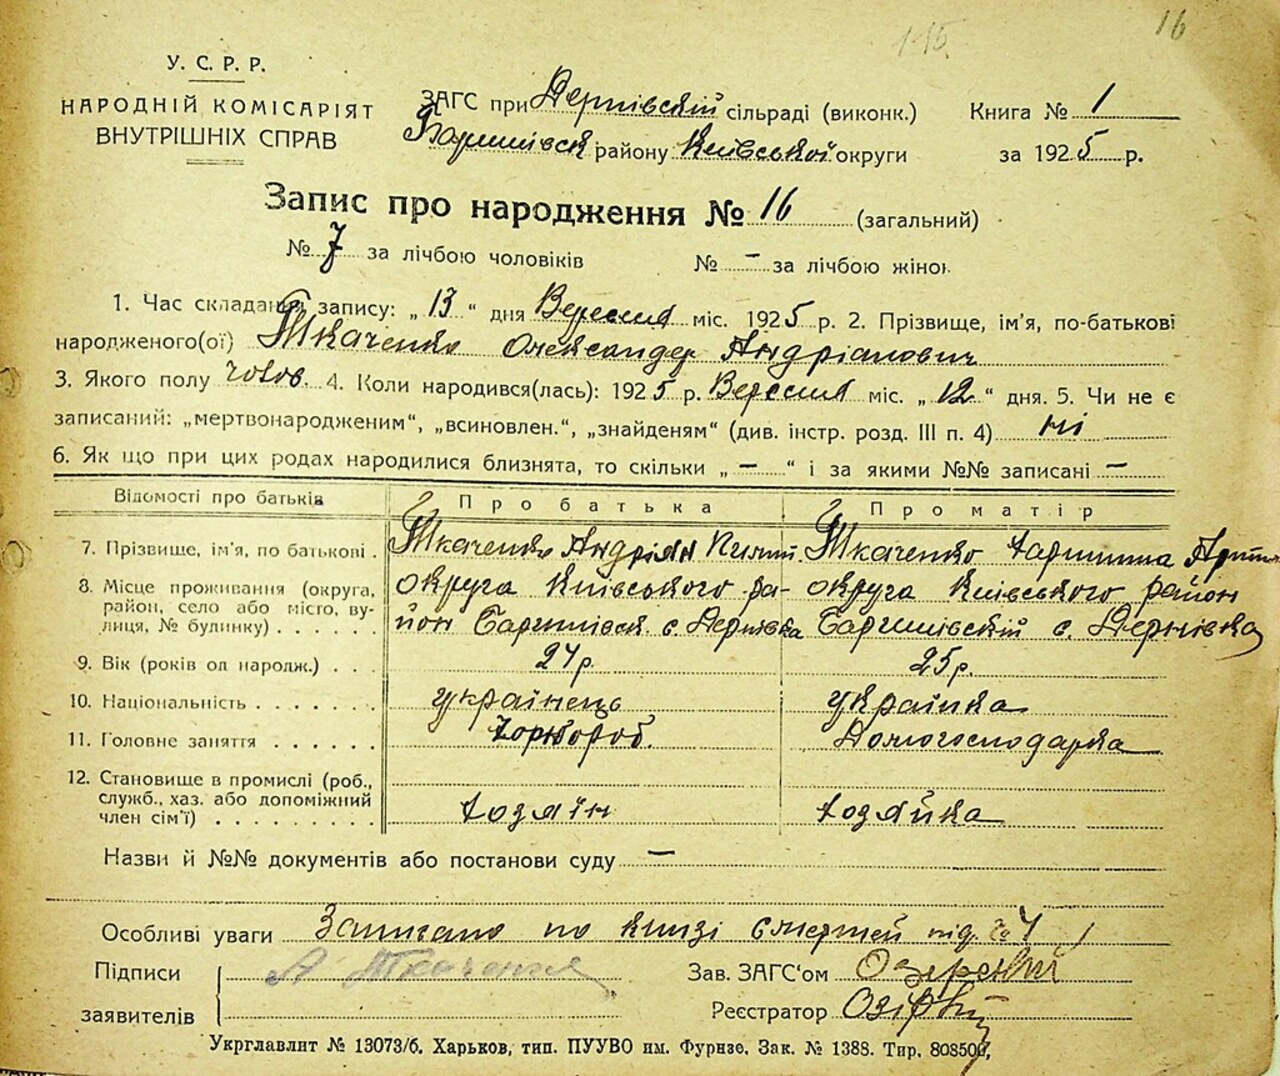 115
16
У. С. Р. Р.
НАРОДНІЙ КОМІСАРІЯТ
ВНУТРІШНІХ СПРАВ
ЗАГС при Дернівській сільраді (виконк.)
Баришівск району Київської округи
Книга № 1
за 1925 р.
Запис про народження № 16 (загальний)
№ 7 за лічбою чоловіків № – за лічбою жінок
1. Час складання запису: „ 13 “ дня Вересня міс. 1925 р. 2. Прізвище, ім'я, по-батькові
народженого(ої) Ткаченко Олександер Андріанович
3. Якого полу чолов. 4. Коли народився(лась): 1925 р. Вересня міс. „ 12 “ дня. 5. Чи не є
записаний: „мертвонародженим“, „всиновлен.“, „знайденям“ (див. інстр. розд. III п. 4) ні
6. Як що при цих родах народилися близнята, то скільки „ – “ і за якими №№ записані –
Відомості про батьків Про батька Про матір
7. Прізвище, ім'я, по батькові . Ткаченко Андріян Ткаченко
8. Місце проживання (округа, район, село або місто, вулиця, № будинку) . . . . . .
округа Київського ра-
йон Баришівск. с. Дернівка
округа Київського район
Баришівській с. Дернівка
9. Вік (років од народж.) . . . 24 р. 25 р.
10. Національність . . . . . . . українець українка
11. Головне заняття . . . . . . Хорбороб. Домогосподарка
12. Становище в промислі (роб., служб., хаз. або допоміжний член сім'ї) . . . . . . . . .
хозяїн хозяйка
Назви й №№ документів або постанови суду –
Особливі уваги Записано по книзі смертей під № 4
Підписи
заявителів
А Ткаченко
Зав. ЗАГС'ом
Реєстратор
Укрглавлит № 13073/б. Харьков, тип. ПУУВО им. Фурнзе. Зак. № 1388. Тир. 808500,